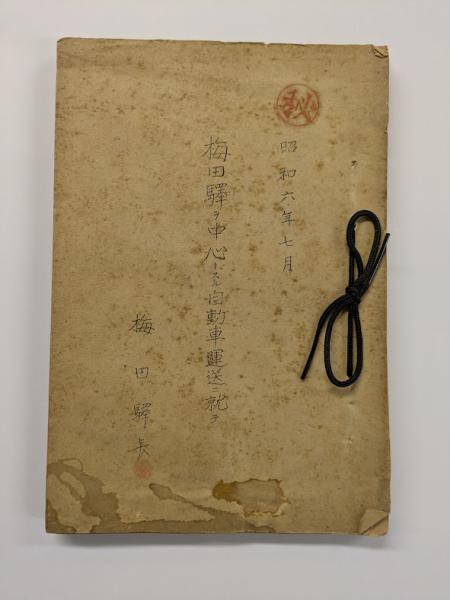 秘
昭和六年七月
梅田驛ヲ中心トスル自動車運送ニ就テ
梅田驛長